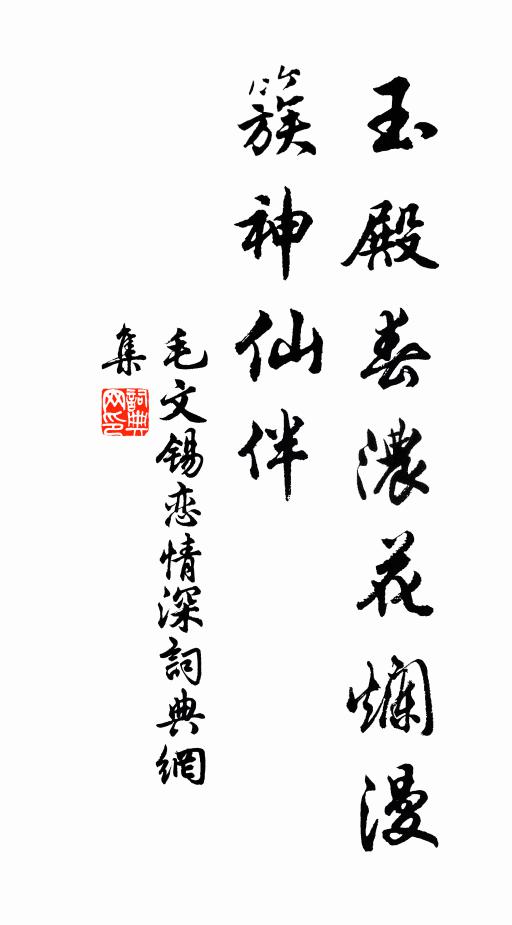 玉殿春濃花爛漫
簇神仙伴
毛文錫恋情深詞典網
集
詞典
网印